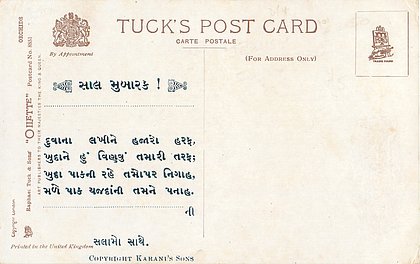 TUCK'S POST CARD
CARTE POSTALE
By Appointment
(FOR ADDRESS ONLY)
TRADE MARK
ORCHIDS
Raphael Tuck & Sons' "OILETTE" Postcard No. 8551
ART PUBLISHERS TO THEIR MAJESTIES THE KING & QUEEN.
Copyright London.
સાલ મુબારક !
દુવાના લખીને હજારો હરફ,
ખુદાને હું વિણવું તમારી તરફ;
ખુદા પાકની રહે તમોપર નિગાહ,
મળે પાક યજદાંની તમને પનાહ.
ની
સલામો સાથે.
Printed in the United Kingdom
COPYRIGHT KARANI'S SONS